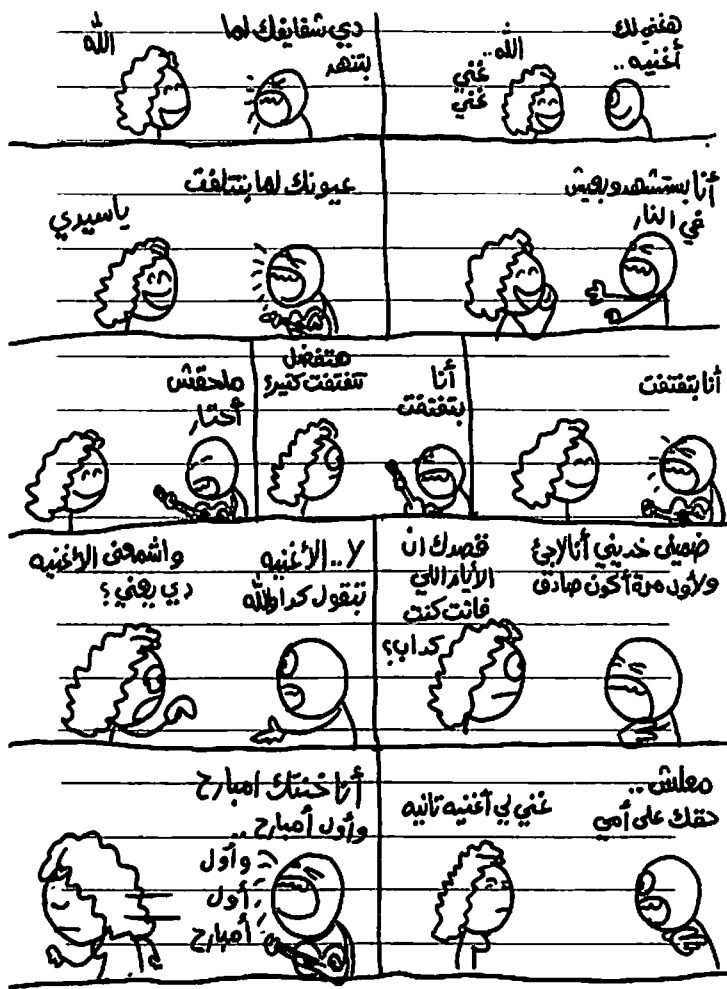 هغني لك
أغنيه..
الله..
غني
غني
دي شفايفك لما
بتنهد
الله
أنا بستشهد وبعيش
في النار
عيونك لما بتتلفت
ياسيدي
أنا بتفتفت
أنا
بتفتفت
هتفضل
تتفتفت كتير؟
ملحقش
أحتار
ضميني خديني أنا لاجئ
ولأول مرة أكون صادق
قصدك ان
الأيام اللي
فاتت كنت
كداب؟
لا.. الأغنيه
بتقول كدا والله
واشمعنى الأغنيه
دي يعني؟
معلش..
حقك على أمي
غني لي أغنيه تانيه
أنا خنتك امبارح
وأول أمبارح..
وأول
أول
أمبارح